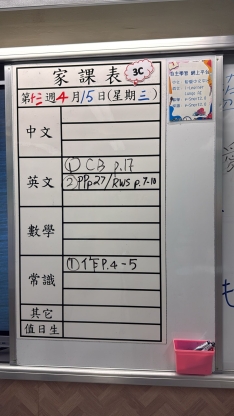 家課表 3C
第十三週4月15日(星期三)
中文
英文
① CB p.17
② PPp27/RWS p.7-10
數學
常識
① 作P.4-5
其它
值日生
自主學習 網上平台